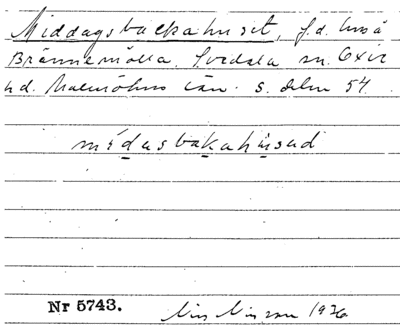 Middagsbackahuset, f.d. hus å
Brännemölla. Svedala sn. Oxie
hd. Malmöhus län. s. delen 54.
mɨdasbakahʉsad
Nr 5743. 1936